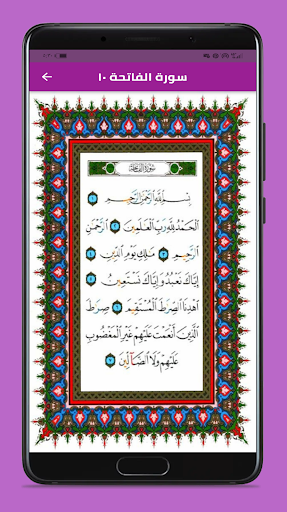 سورة الفاتحة ١٠
سُورَةُ الفَاتِحَةِ
بِسْمِ ٱللَّهِ ٱلرَّحْمَٰنِ ٱلرَّحِيمِ ١
ٱلْحَمْدُ لِلَّهِ رَبِّ ٱلْعَٰلَمِينَ ٢ ٱلرَّحْمَٰنِ
ٱلرَّحِيمِ ٣ مَٰلِكِ يَوْمِ ٱلدِّينِ ٤
إِيَّاكَ نَعْبُدُ وَإِيَّاكَ نَسْتَعِينُ ٥
ٱهْدِنَا ٱلصِّرَٰطَ ٱلْمُسْتَقِيمَ ٦ صِرَٰطَ
ٱلَّذِينَ أَنْعَمْتَ عَلَيْهِمْ غَيْرِ ٱلْمَغْضُوبِ
عَلَيْهِمْ وَلَا ٱلضَّآلِّينَ ٧